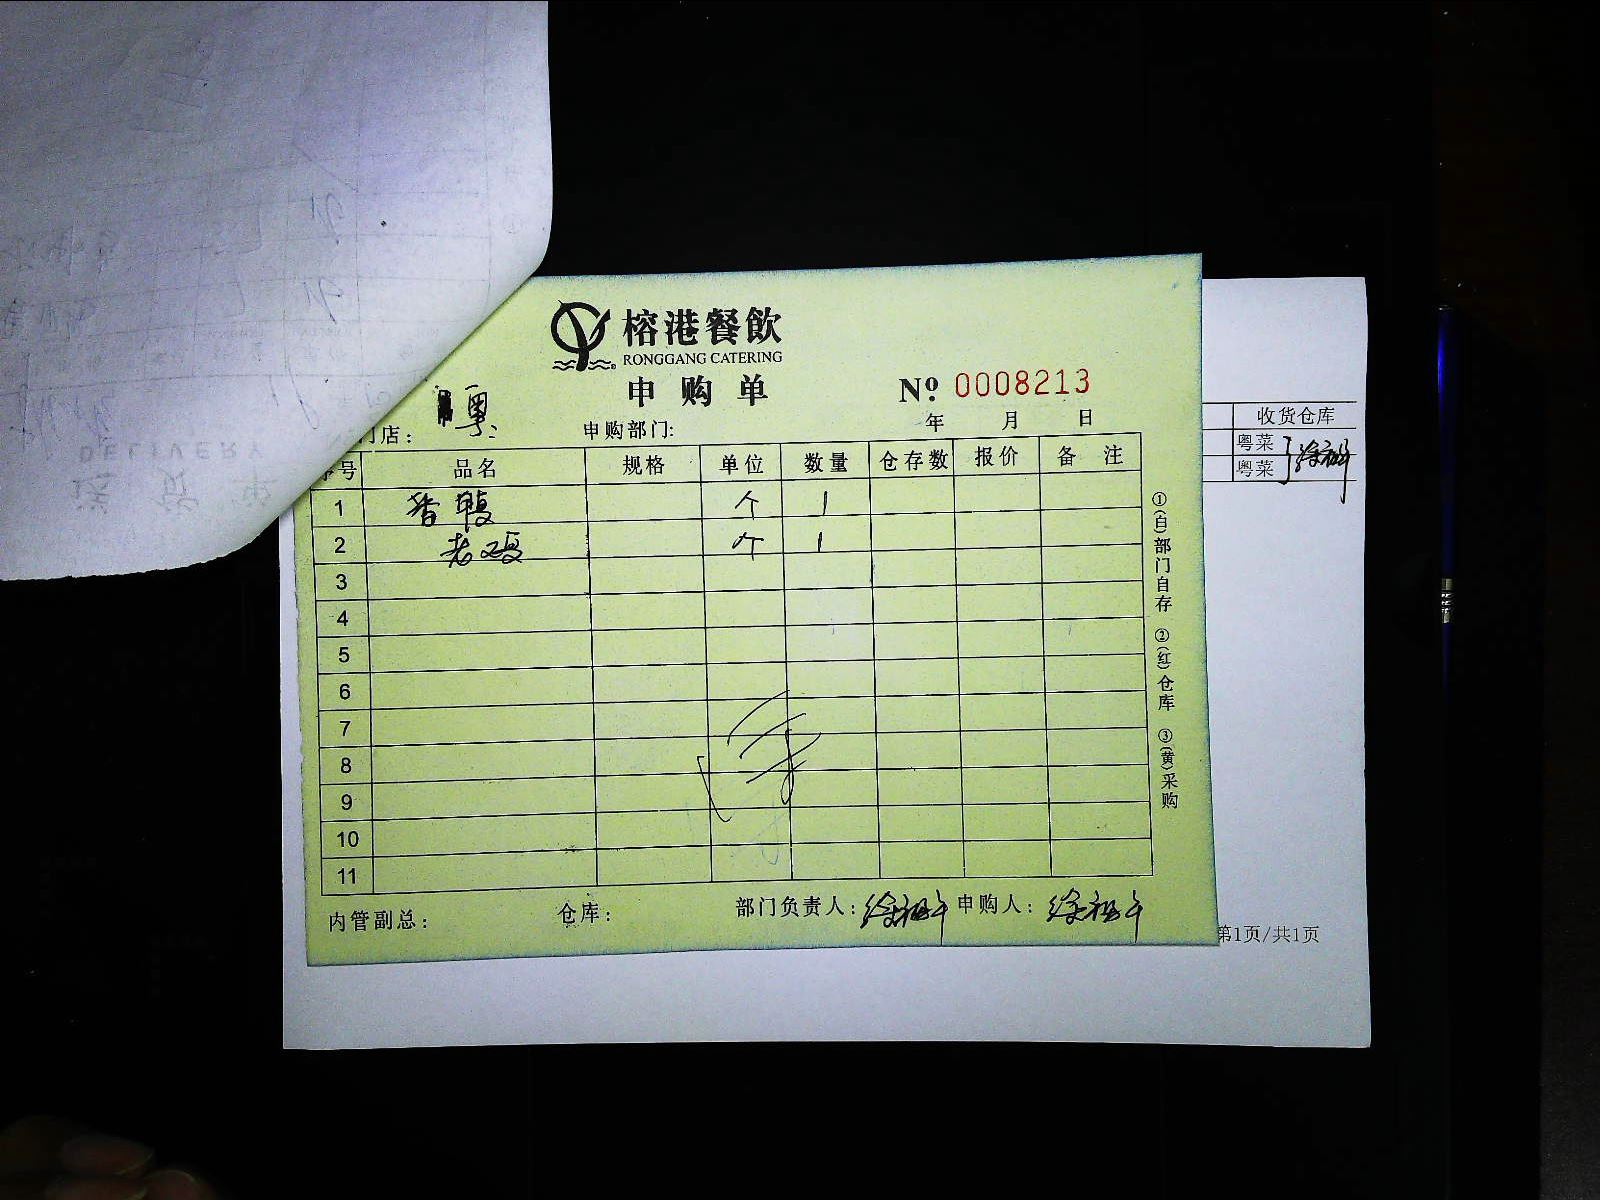 榕港餐飲
RONGGANG CATERING
申购单 Nº 0008213
门店： 粤
申购部门: 年 月 日
序号 品名 规格 单位 数量 仓存数 报价 备 注
1 个 1
2 老鸡 个 1
3
4
5
6
7
8
9
10
11
内管副总： 仓库： 部门负责人： 申购人：
①(白)部门自存 ②(红)仓库 ③(黄)采购
收货仓库
粤菜
粤菜
第1页/共1页
DELIVERY
送货单